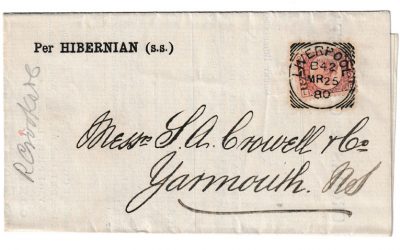 Per HIBERNIAN (s.s.)
LIVERPOOL
B42
MR 25
80
Messrs S. A. Crowell & Co
Yarmouth. NS